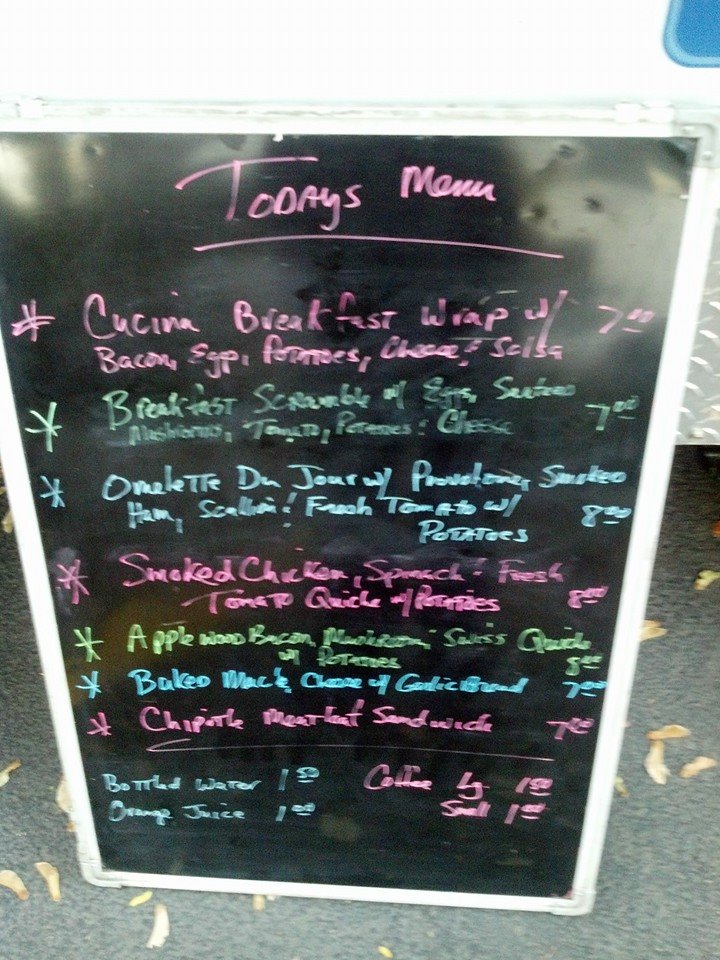 TODAYS Menu
* Cucina Breakfast Wrap w/ 7.00
Bacon, Egg, Potatoes, Cheese & Salsa
* Breakfast Scramble w/ Eggs,
Mushrooms, Tomato, Potatoes & Cheese 7.00
* Omelette Du Jour w/ Provolone, Smoked
Ham, Scallion & Fresh Tomato w/ 8.00
Potatoes
* Smoked Chicken, Spinach & Fresh
Tomato Quiche w/ Potatoes 8.00
* Applewood Bacon, Mushroom, Swiss Quiche
w/ Potatoes 8.00
* Baked Mac & Cheese w/ Garlic Bread 7.00
* Chipotle Meatloaf Sandwich 7.00
Bottled Water 1.50 Coffee Lg. 1.50
Orange Juice 1.00 Small 1.00